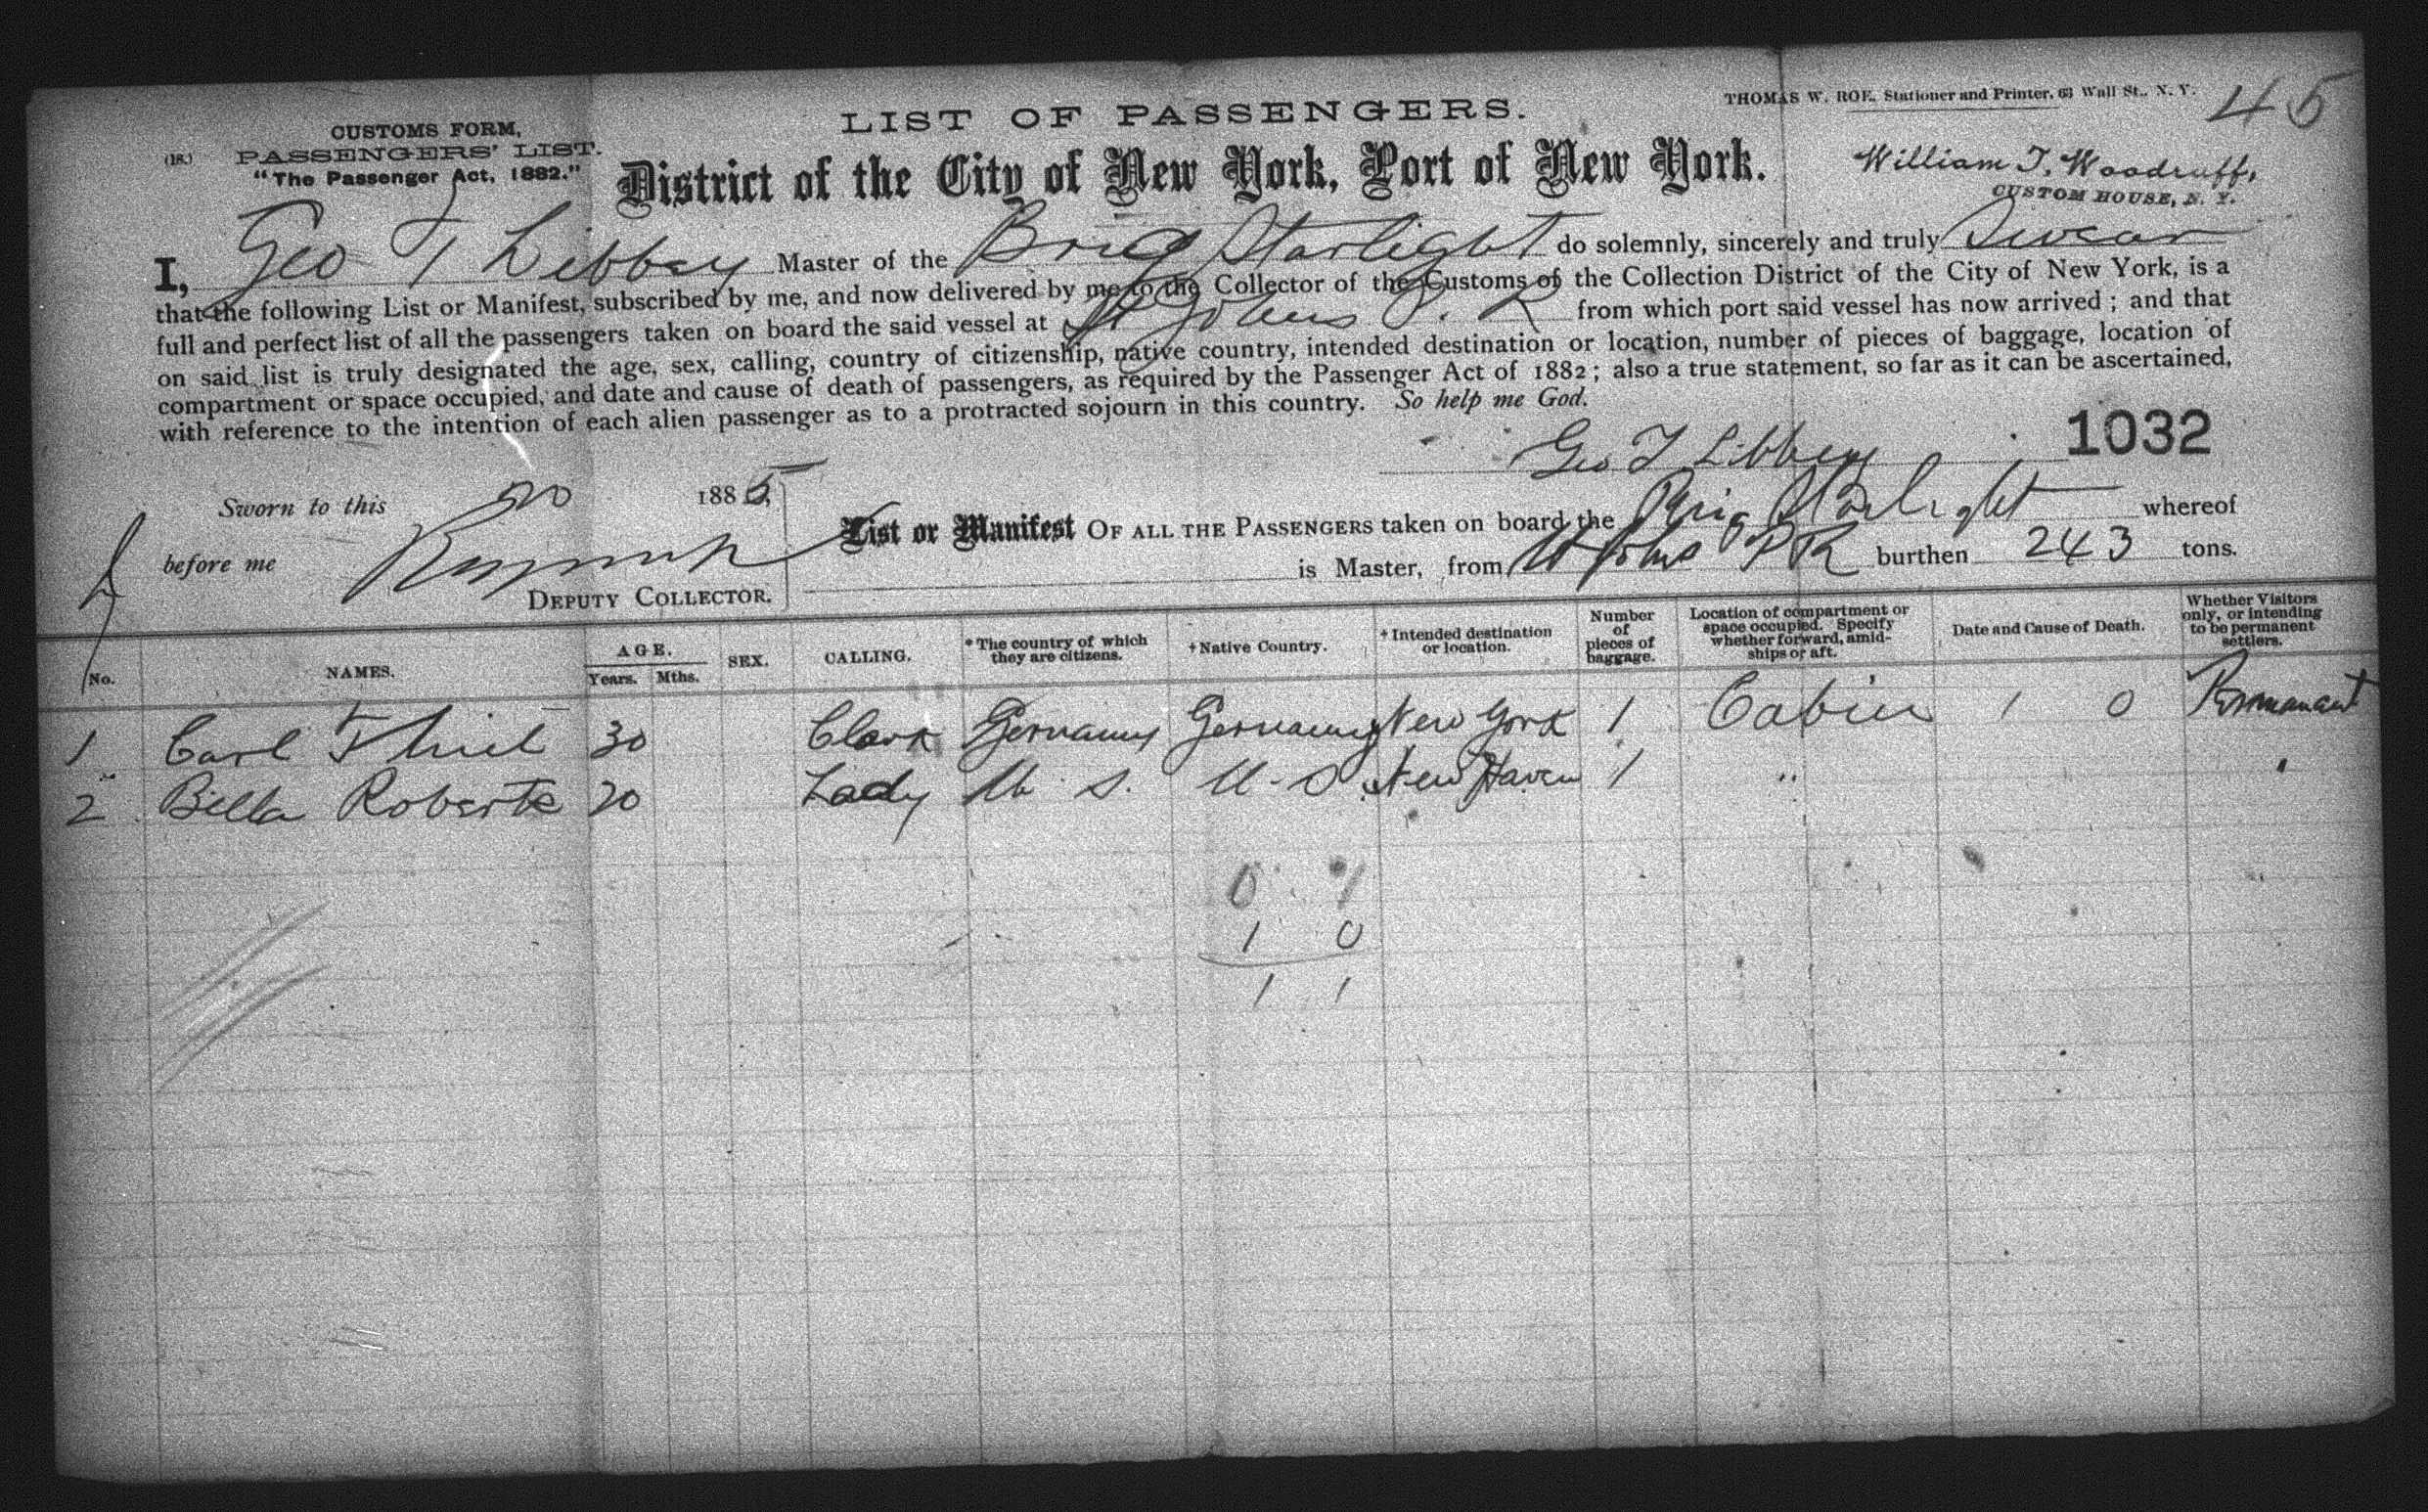 THOMAS W. ROE, Stationer and Printer, 63 Wall St., N. Y.
45
LIST OF PASSENGERS.
CUSTOMS FORM,
(18.) PASSENGERS' LIST.
"The Passenger Act, 1882."
District of the City of New York, Port of New York.
William T. Woodruff,
CUSTOM HOUSE, N. Y.
I, Geo T Libbey Master of the Brig Starlight do solemnly, sincerely and truly Swear
that the following List or Manifest, subscribed by me, and now delivered by me to the Collector of the Customs of the Collection District of the City of New York, is a
full and perfect list of all the passengers taken on board the said vessel at St Johns P. R from which port said vessel has now arrived; and that
on said list is truly designated the age, sex, calling, country of citizenship, native country, intended destination or location, number of pieces of baggage, location of
compartment or space occupied, and date and cause of death of passengers, as required by the Passenger Act of 1882; also a true statement, so far as it can be ascertained,
with reference to the intention of each alien passenger as to a protracted sojourn in this country. So help me God.
Geo T Libbey
1032
Sworn to this 20 1885,
before me
DEPUTY COLLECTOR.
List or Manifest OF ALL THE PASSENGERS taken on board the Brig Starlight whereof
is Master, from St Johns P R burthen 243 tons.
No. NAMES. AGE. Years. Mths. SEX. CALLING. *The country of which they are citizens. †Native Country. †Intended destination or location. Number of pieces of baggage. Location of compartment or space occupied. Specify whether forward, amidships or aft. Date and Cause of Death. Whether Visitors only, or intending to be permanent settlers.
1 Carl Thiel 30 Clark Germany Germany New York 1 Cabin 1 0 Permanant
2 Bella Roberts 20 Lady U. S. U. S New Haven 1 " "
0 1
1 0
1 1